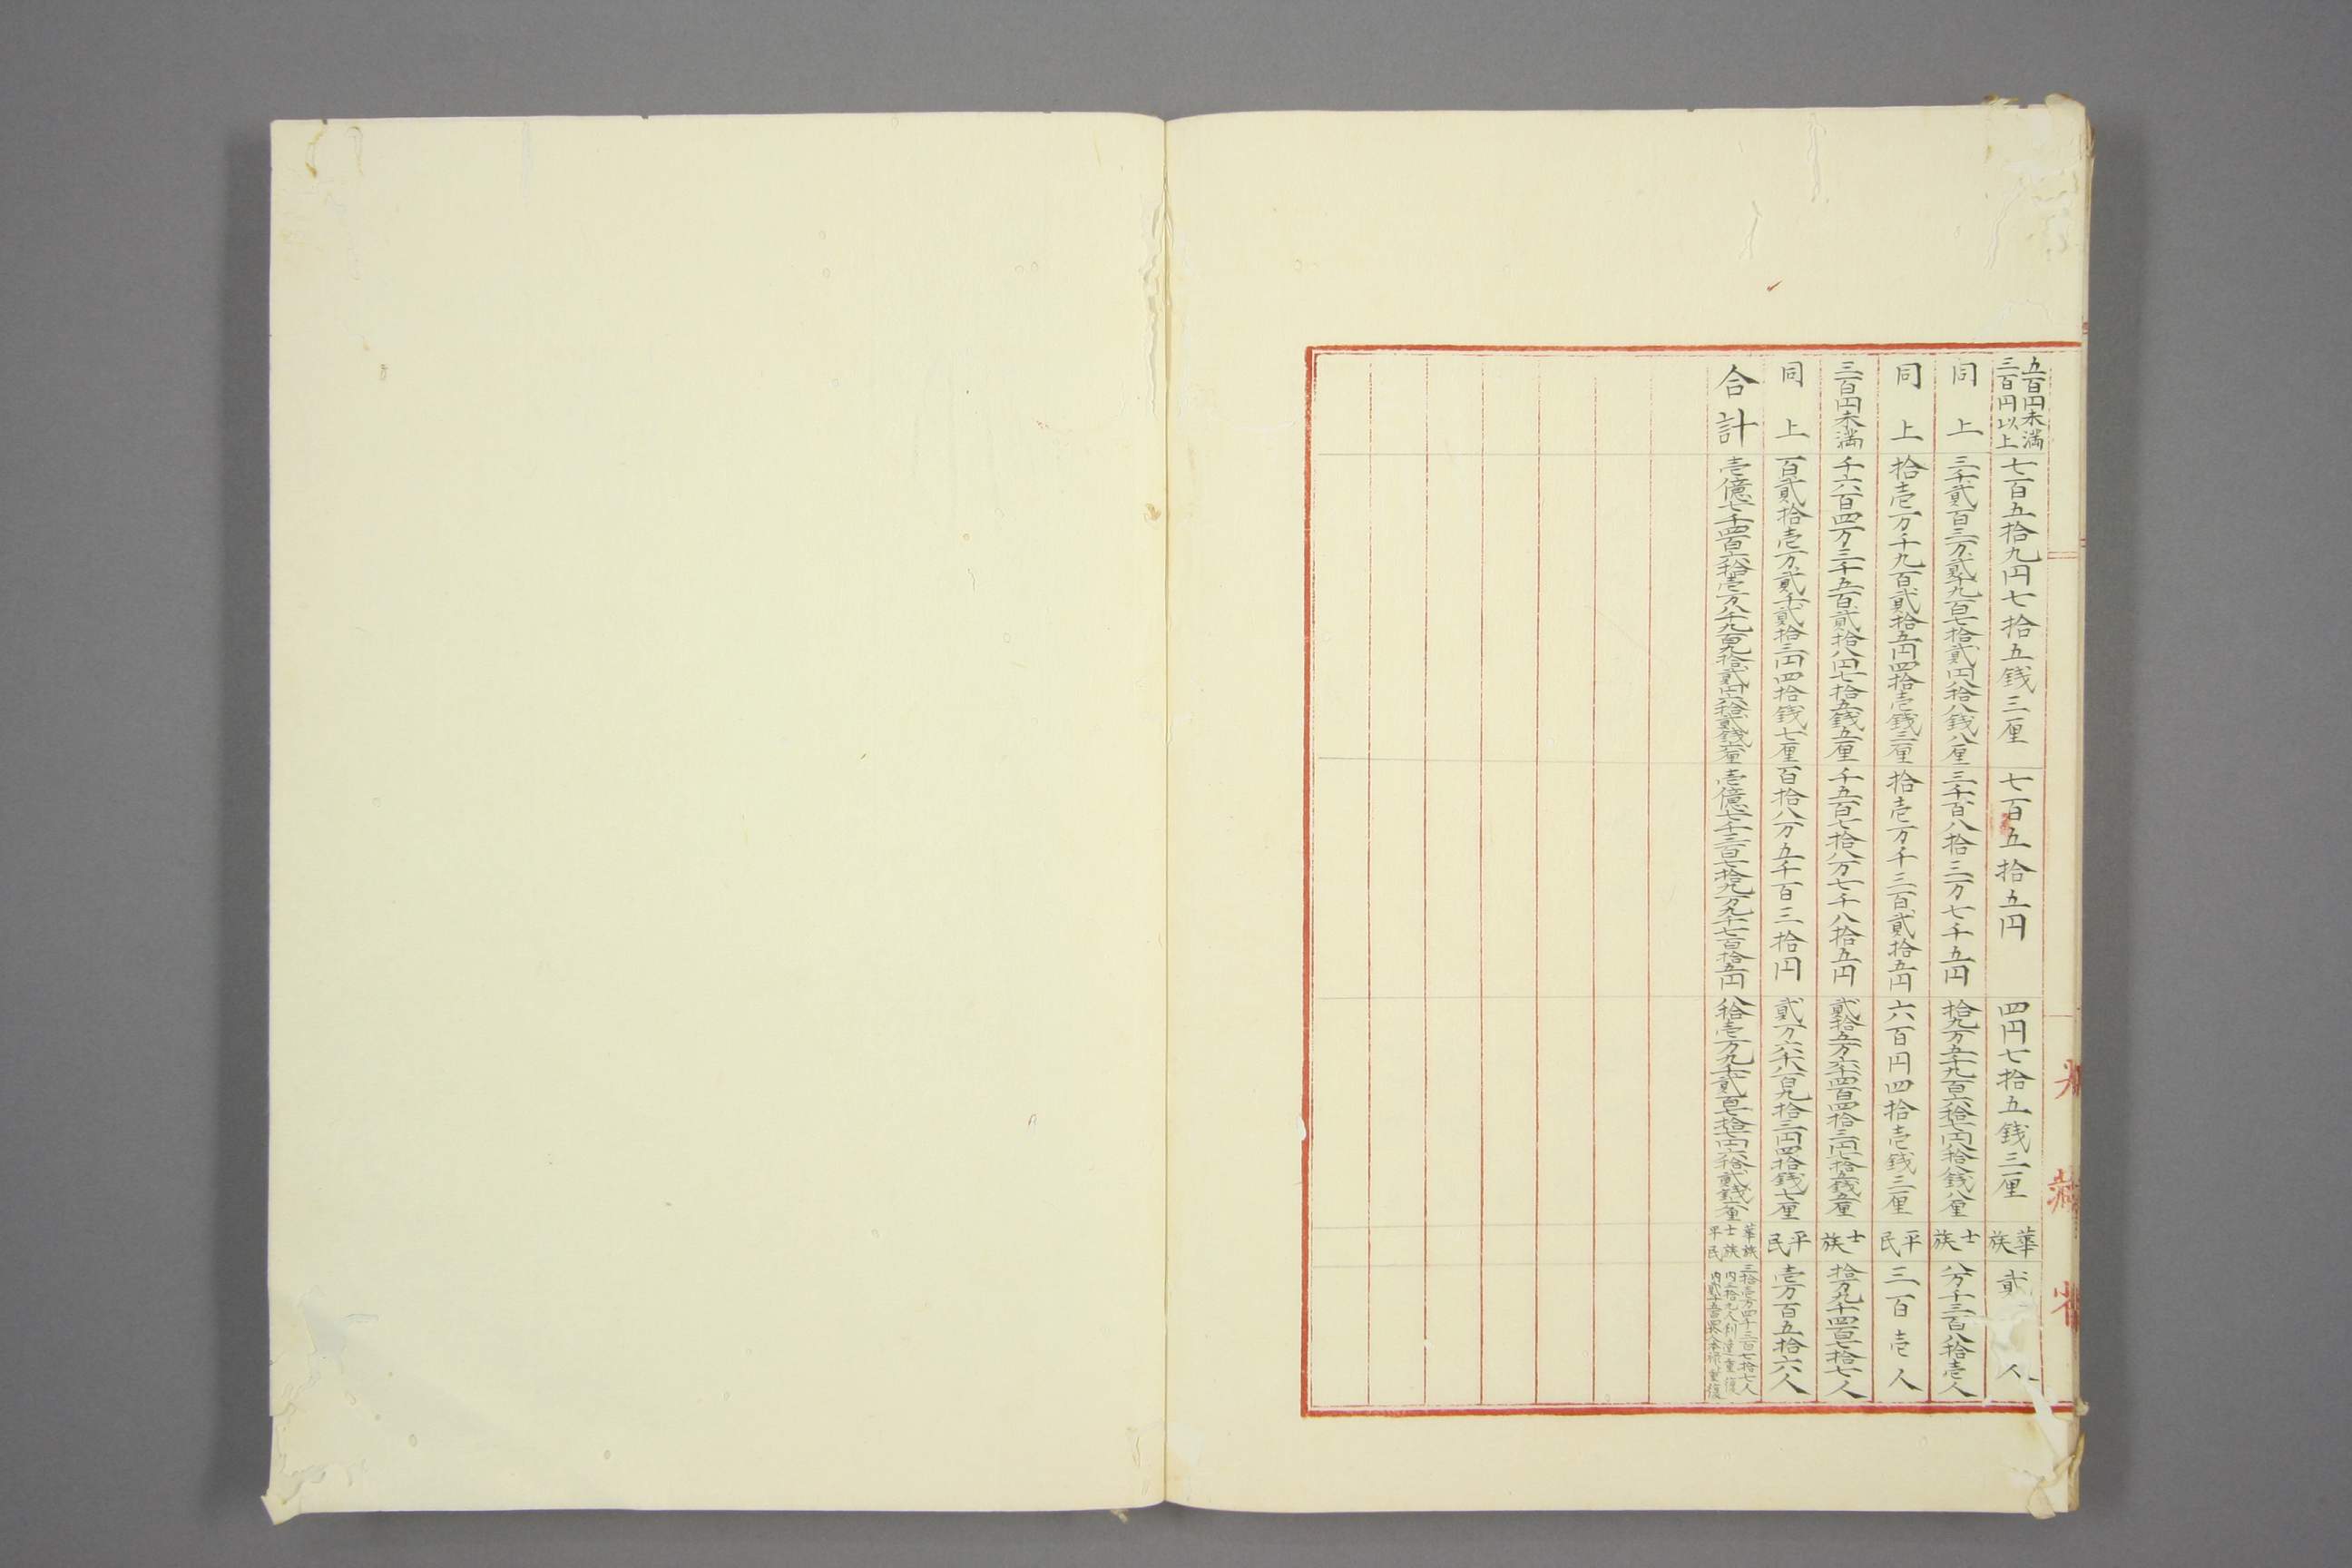 五百円未満
三百円以上
七百五拾九円七拾五銭三厘
七百五拾五円
四円七拾五銭三厘
華族
貳人
同上
三千貳百三万貳千九百七拾貳円八拾八銭八厘
三千百八拾三万七千五円
拾九万五千九百六拾七円八拾八銭八厘
士族
八万千三百八拾壱人
同上
拾壱万千九百貳拾五円四拾壱銭三厘
拾壱万千三百貳拾五円
六百円四拾壱銭三厘
平民
三百壱人
三百円未満
千六百四万三千五百貳拾八円七拾五銭五厘
千五百七拾八万七千八拾五円
貳拾五万六千四百四拾三円七拾五銭五厘
士族
拾万九千四百七拾七人
同上
百貳拾壱万貳千貳拾三円四拾銭七厘
百拾八万五千百三拾円
貳万六千八百九拾三円四拾銭七厘
平民
壱万百五拾六人
合計
壱億七千四百六拾壱万八千九百九拾貳円六拾貳銭壱厘
壱億七千三百七拾九万九千七百拾五円
八拾壱万九千貳百七拾七円六拾貳銭壱厘
華族
士族
平民
三拾壱万四千三百七拾七人
内三拾九人利違重復
内貳千五百四人本禄重復
藏
省